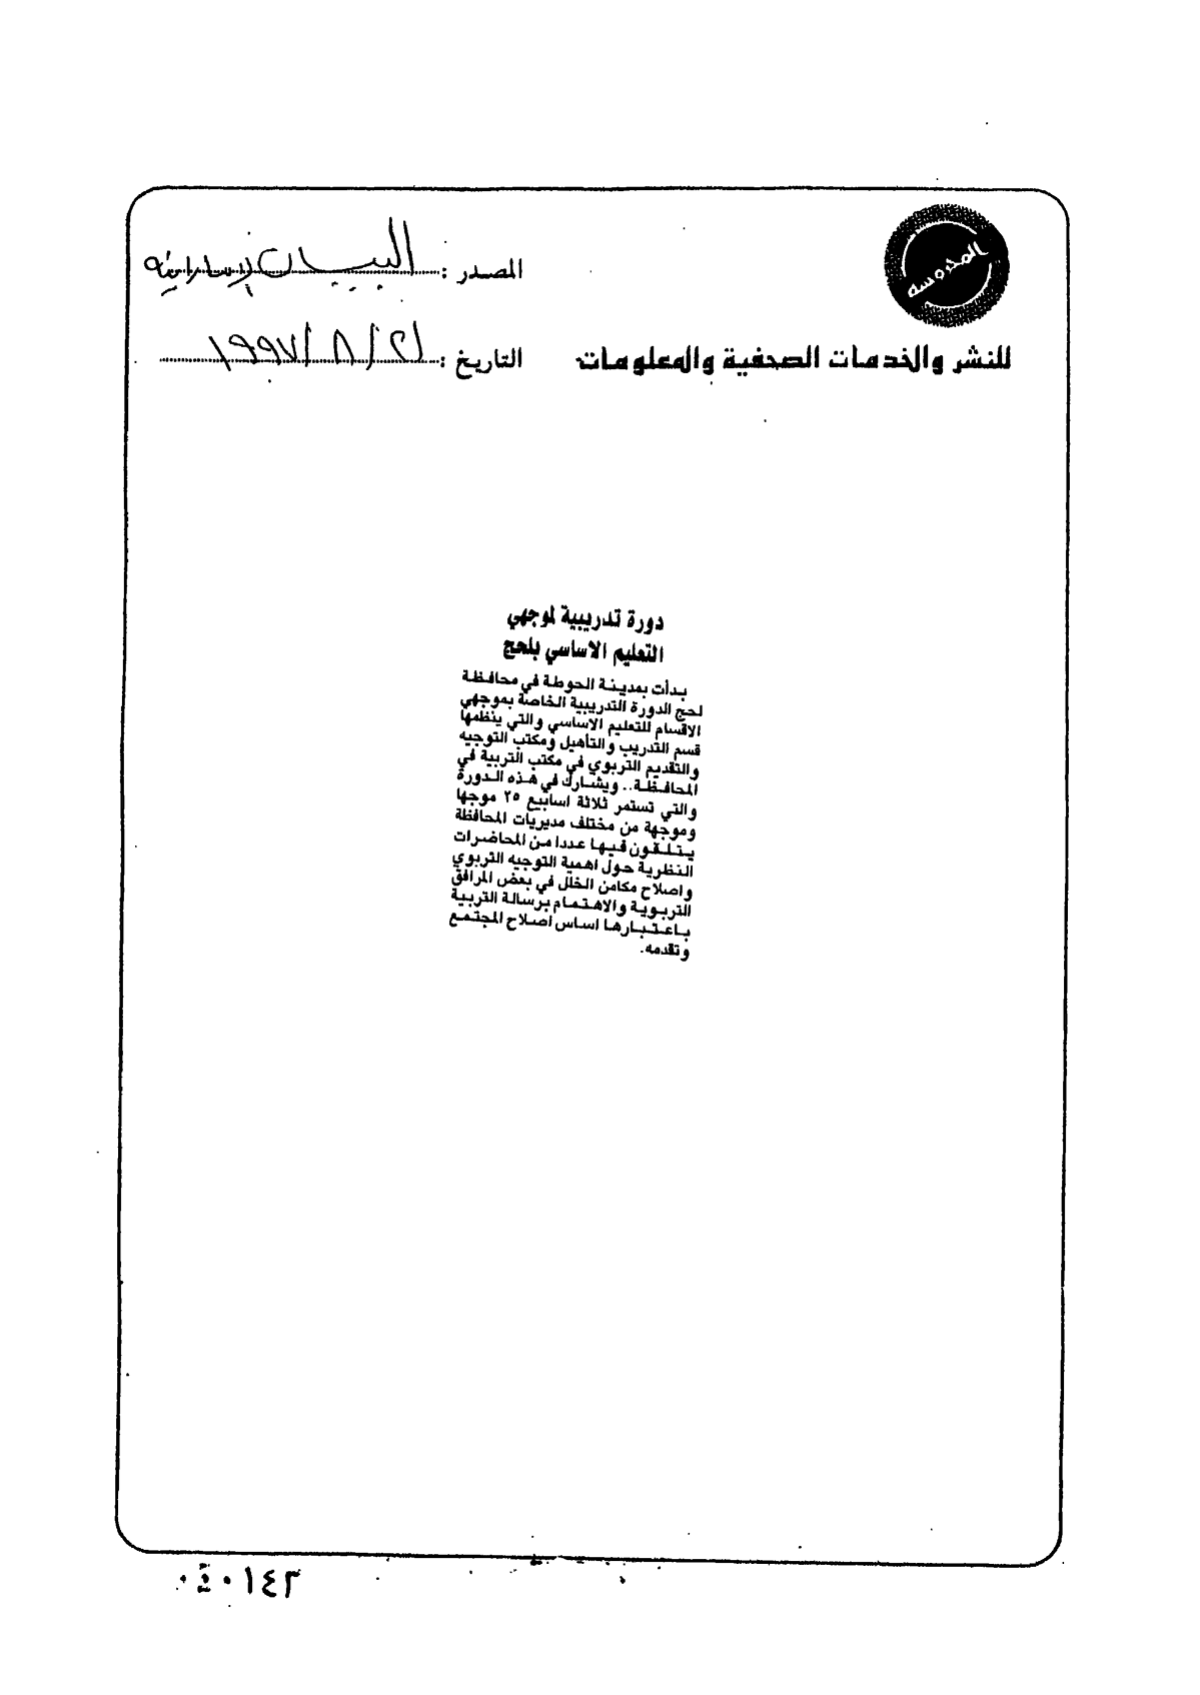 المحروسة
المصدر : البيان الإماراتية
للنشر والخدمات الصحفية والمعلومات
التاريخ : ٢/ ٨ /١٩٩٧
دورة تدريبية لموجهي
التعليم الاساسي بلحج
بدأت بمدينة الحوطة في محافظة
لحج الدورة التدريبية الخاصة بموجهي
الاقسام للتعليم الاساسي والتي ينظمها
قسم التدريب والتأهيل ومكتب التوجيه
والتقديم التربوي في مكتب التربية في
المحافظة.. ويشارك في هذه الدورة
والتي تستمر ثلاثة اسابيع ٢٥ موجها
وموجهة من مختلف مديريات المحافظة
يتلقون فيها عددا من المحاضرات
النظرية حول اهمية التوجيه التربوي
واصلاح مكامن الخلل في بعض المرافق
التربوية والاهتمام برسالة التربية
باعتبارها اساس اصلاح المجتمع
وتقدمه.